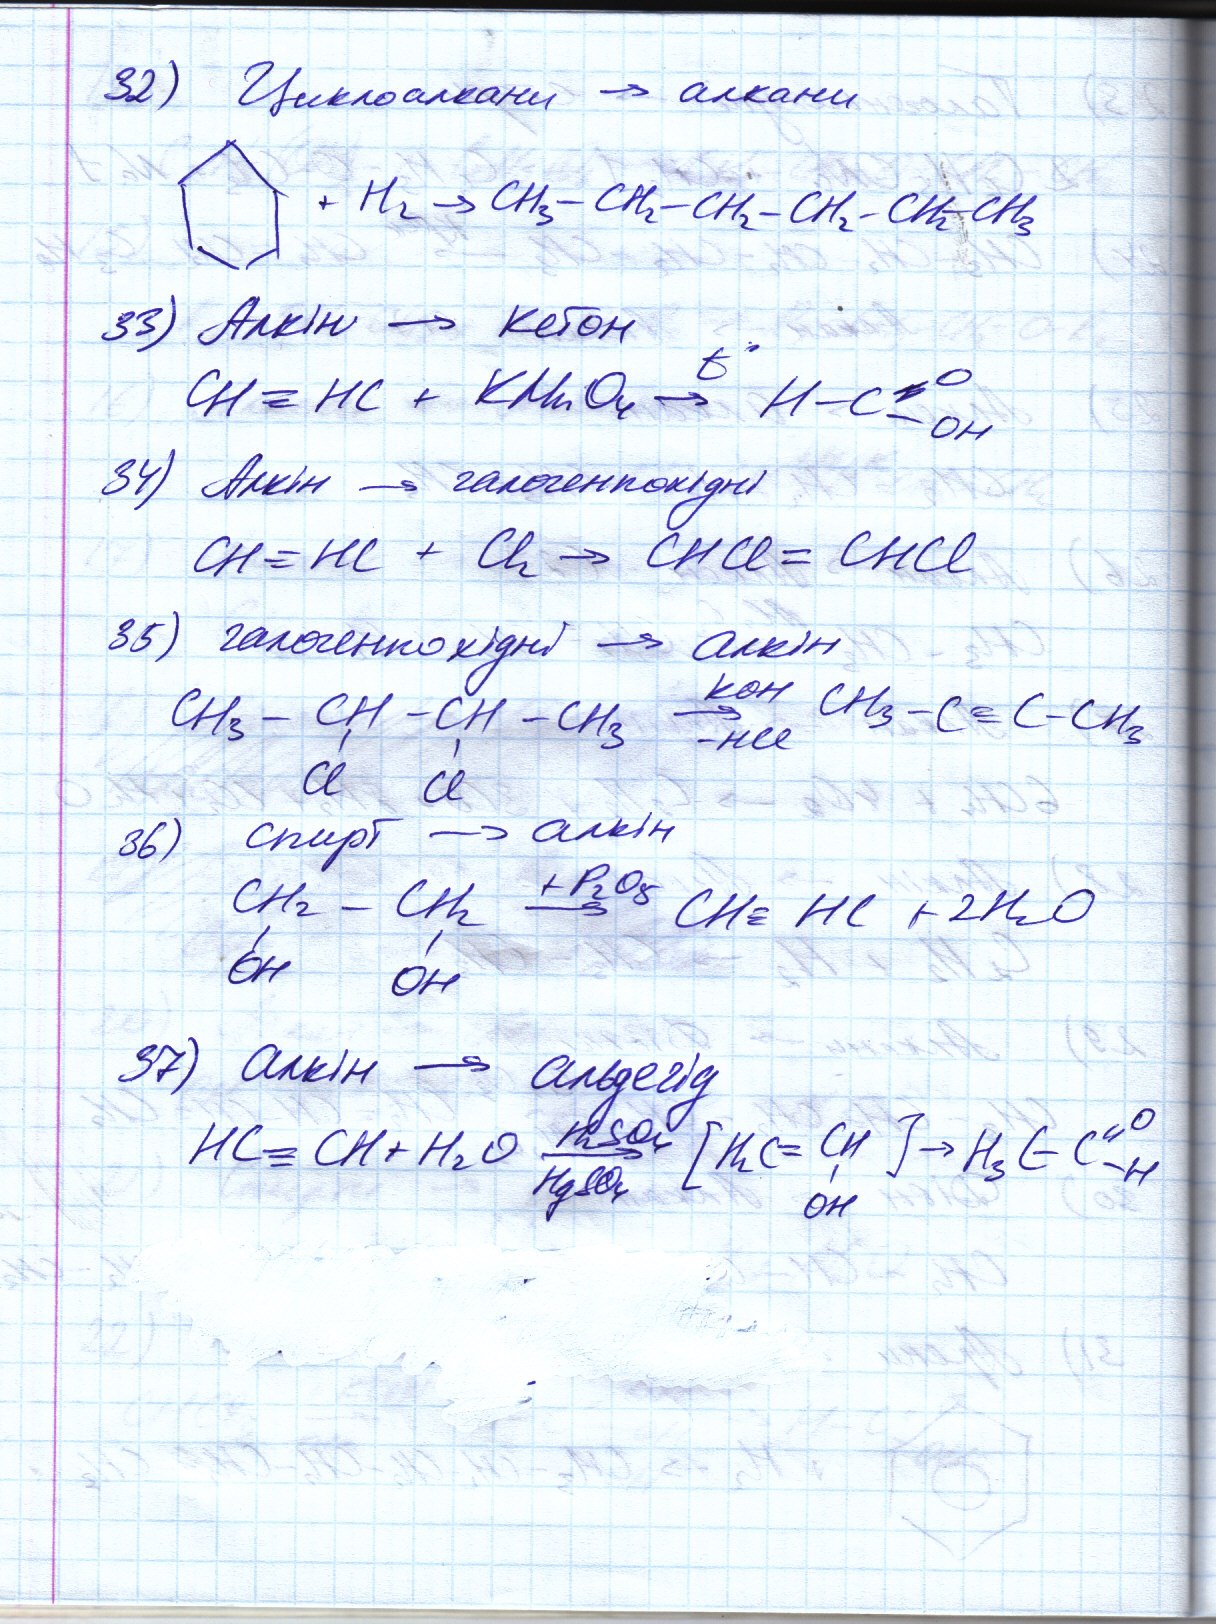 32) Циклоалкани → алкани
+ H₂ → CH₃ – CH₂ – CH₂ – CH₂ – CH₂ – CH₃
33) Алкін → кетон
CH ≡ HC + KMnO₄ →t° H – C =O – OH
34) Алкін → галогенпохідні
CH ≡ HC + Cl₂ → CHCl = CHCl
35) галогенпохідні → алкін
CH₃ – CH – CH – CH₃ →KOH -HCl CH₃ – C ≡ C – CH₃
Cl Cl
36) спирт → алкін
CH₂ – CH₂ →+P₂O₅ CH ≡ HC + 2H₂O
OH OH
37) алкін → альдегід
HC ≡ CH + H₂O →H₂SO₄ HgSO₄ [H₂C = CH] → H₃C – C =O – H
OH